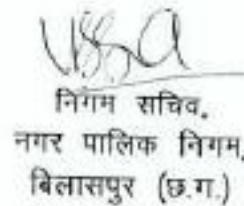 निगम सचिव,
नगर पालिक निगम,
बिलासपुर (छ.ग.)